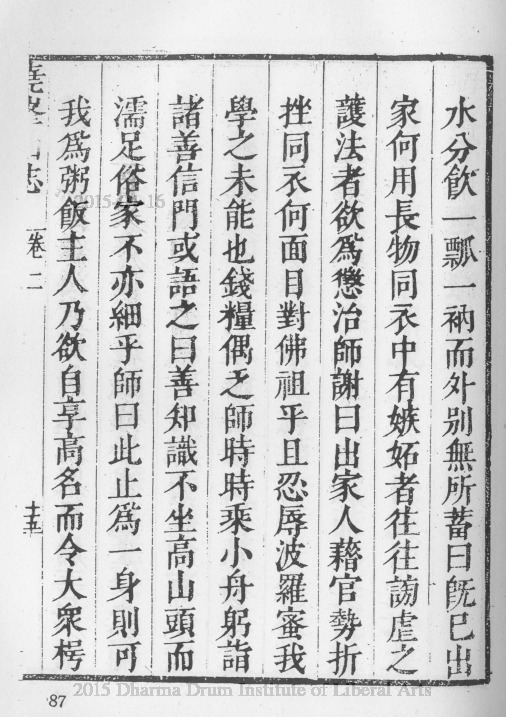 水分飲一瓢一衲而外別無所蓄曰旣已出
家何用長物同衣中有嫉妬者往往謗虐之
護法者欲爲懲治師謝曰出家人藉官勢折
挫同衣何面目對佛祖乎且忍辱波羅蜜我
學之未能也錢糧偶乏師時時乘小舟躬詣
諸善信門或語之曰善知識不坐高山頭而
濡足俗家不亦細乎師曰此止爲一身則可
我爲粥飯主人乃欲自享高名而令大衆枵
志 卷二 十五
2015-04-16
87
2015 Dharma Drum Institute of Liberal Arts